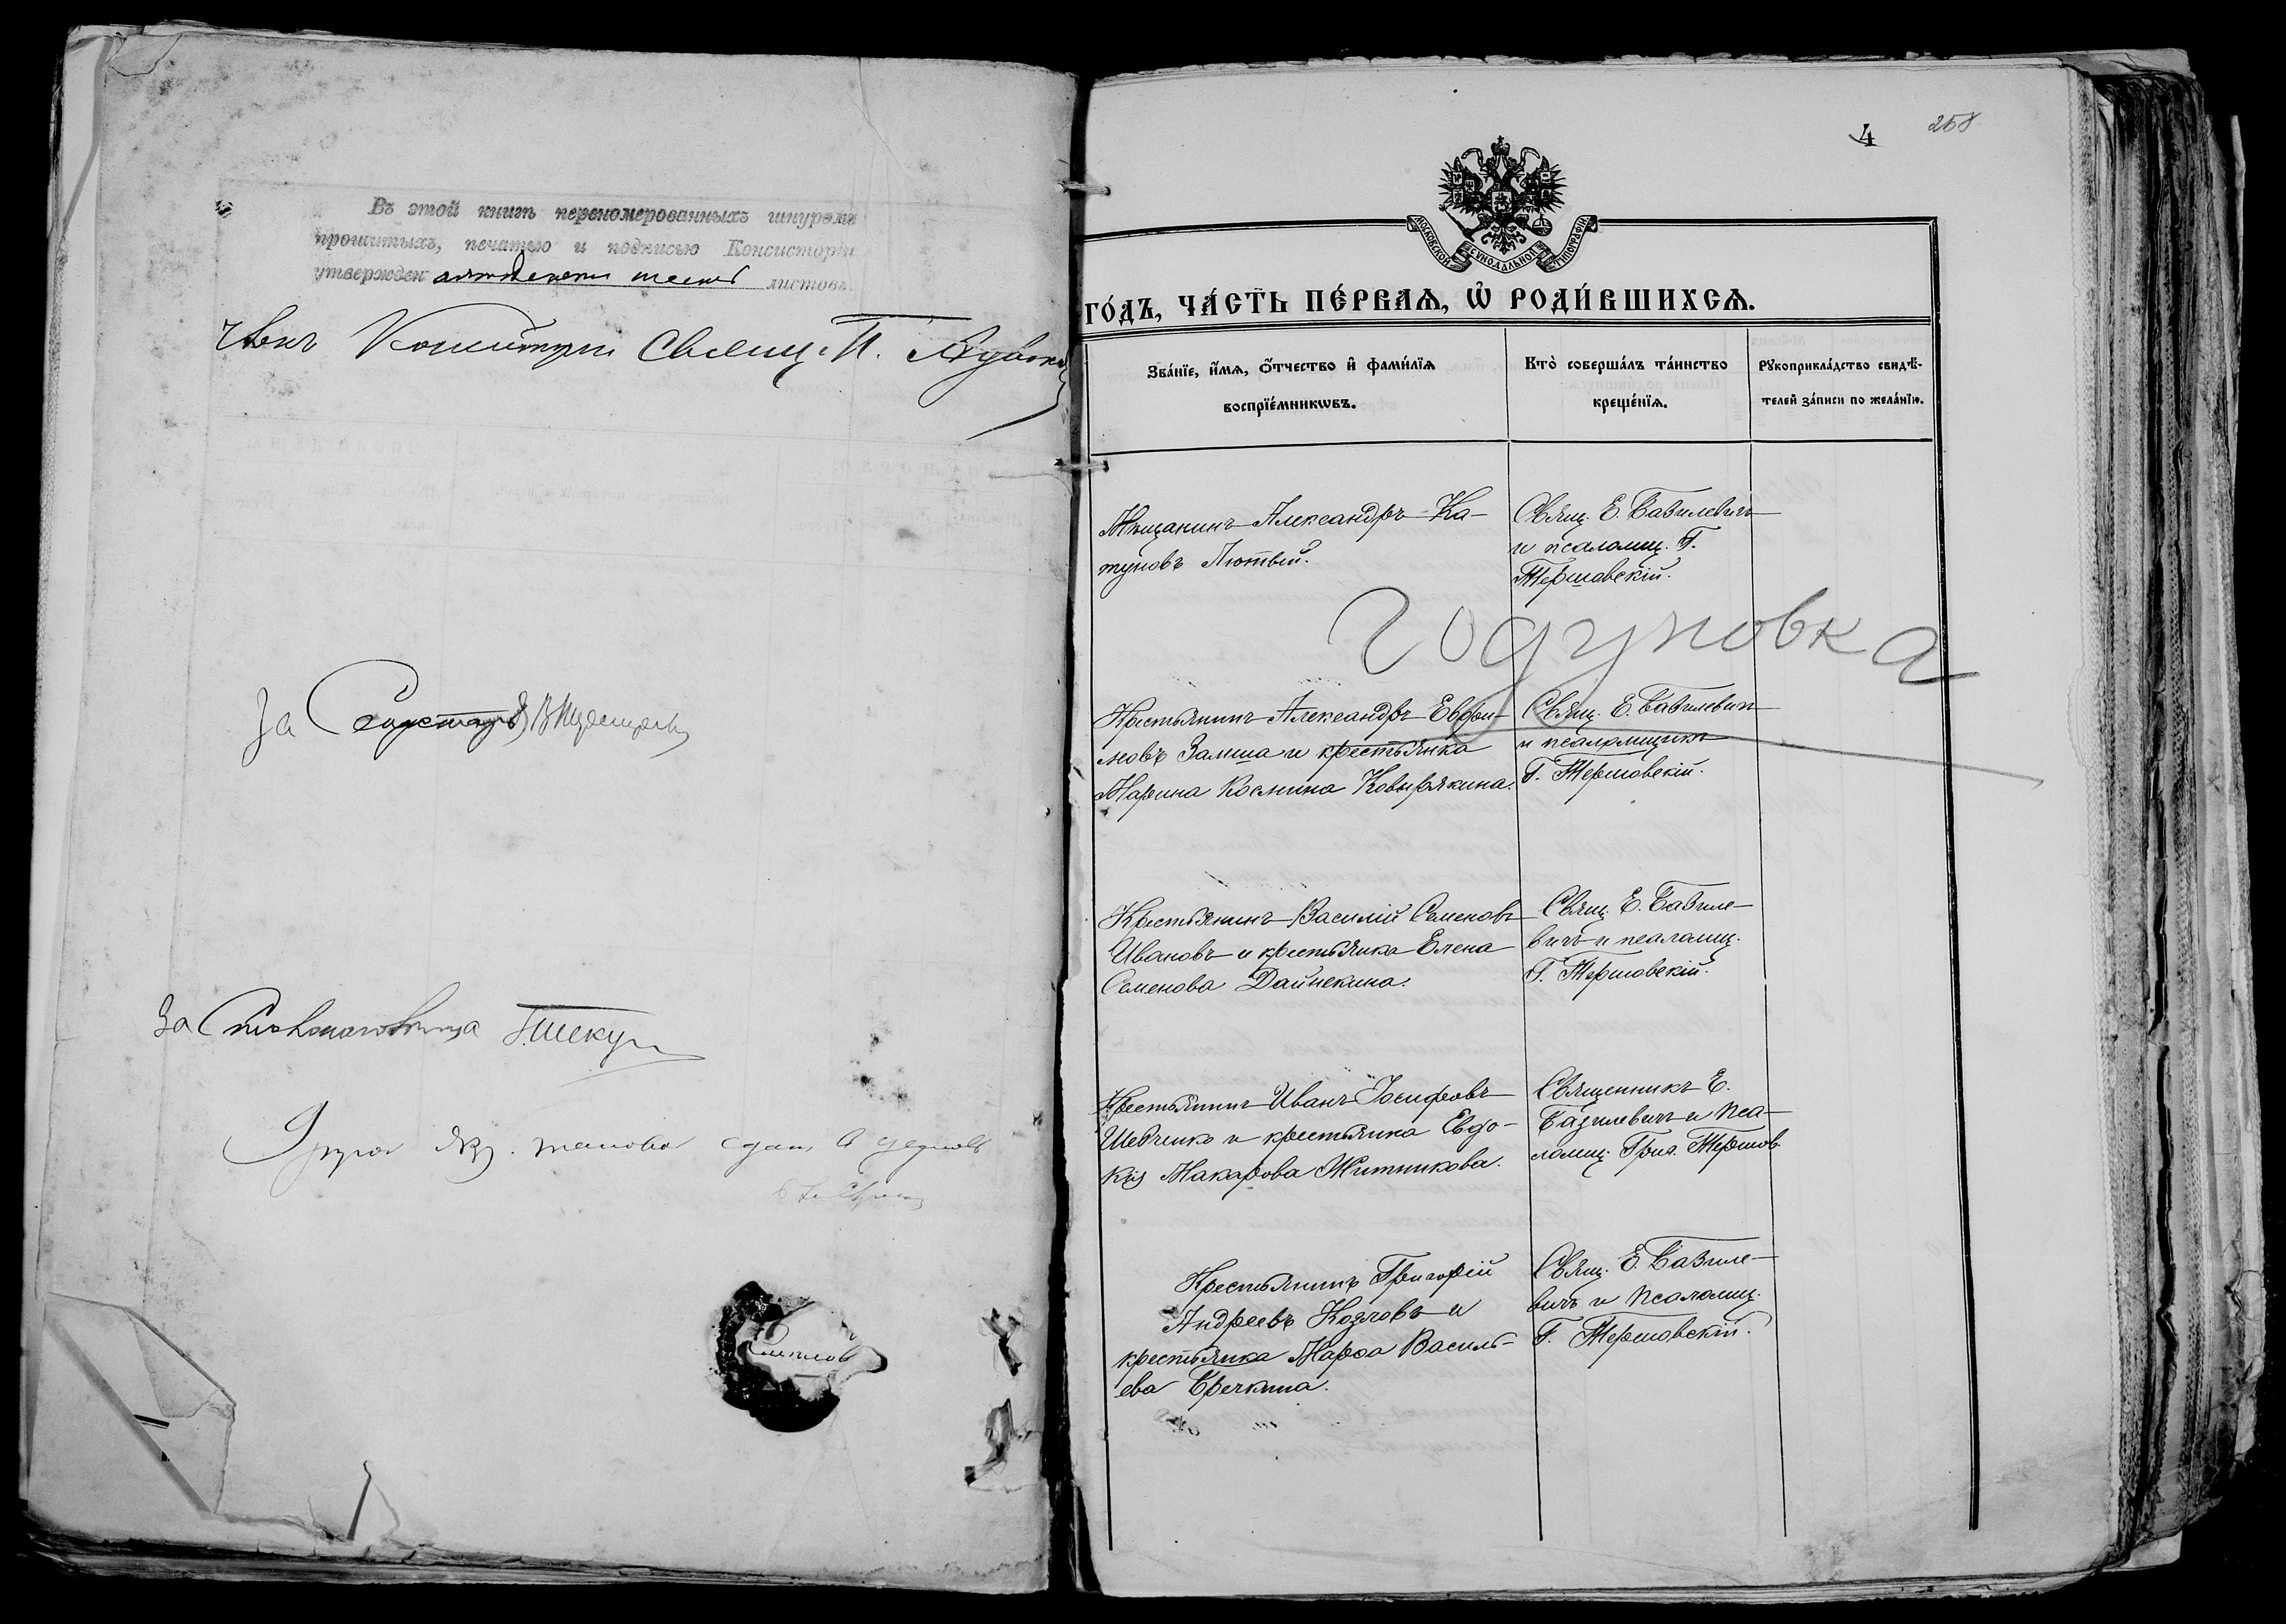 Въ этой книгѣ перенумерованныхъ шнуромъ
прошитыхъ, печатью и подписью Консисторіи
утвержден листовъ.
Членъ Консисторіи Священ. П.
За
За
сдан в
4
258
МОСКОВСКОЙ СѴНОДАЛЬНОЙ ТИПОГРАФІИ
ГО́ДЪ, ЧА́СТЬ ПЕ́РВАѦ, Ѡ҆ РОДИ́ВШИХСѦ.
Зва́нїе, и҆́мѧ, ѻ҆́тчество и҆ фами́лїѧ
воспрїе́мникѡвъ.
Кто̀ соверша́лъ та́инство
креще́нїѧ.
Рꙋкоприкла́дство свидѣ́-
телей за́писи по жела́нїю.
Мѣщанинъ Александръ Ка-
туновъ Лютый.
Свящ. Е. Базилевичъ
и псаломщ. Г.
Тершовскій.
Годуновка
Крестьянинъ Александръ Евфи-
мовъ Замша и крестьянка
Марина Космина Ковырякина.
Свящ. Е. Базилевичъ
и псаломщикъ
Г. Тершовскій.
Крестьянинъ Василій Семеновъ
Ивановъ и крестьянка Елена
Семенова Дайнекина.
Свящ. Е. Базиле-
вичъ и псаломщ.
Г. Тершовскій.
Крестьянинъ Иванъ Іосифовъ
Шевченко и крестьянка Евдо-
кія Макарова Житникова.
Священникъ Е.
Базилевичъ и пса-
ломщ. Григ. Тершов.
Крестьянинъ Григорій
Андреевъ Козловъ и
крестьянка Марѳа Василь-
ева Бречкина.
Свящ. Е. Базиле-
вичъ и псаломщ.
Г. Тершовскій.